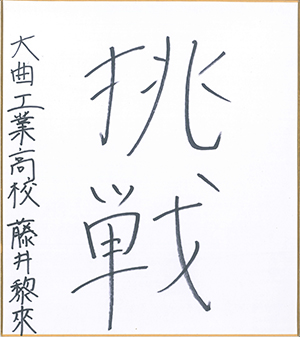 挑戦
大曲工業高校 藤井黎來